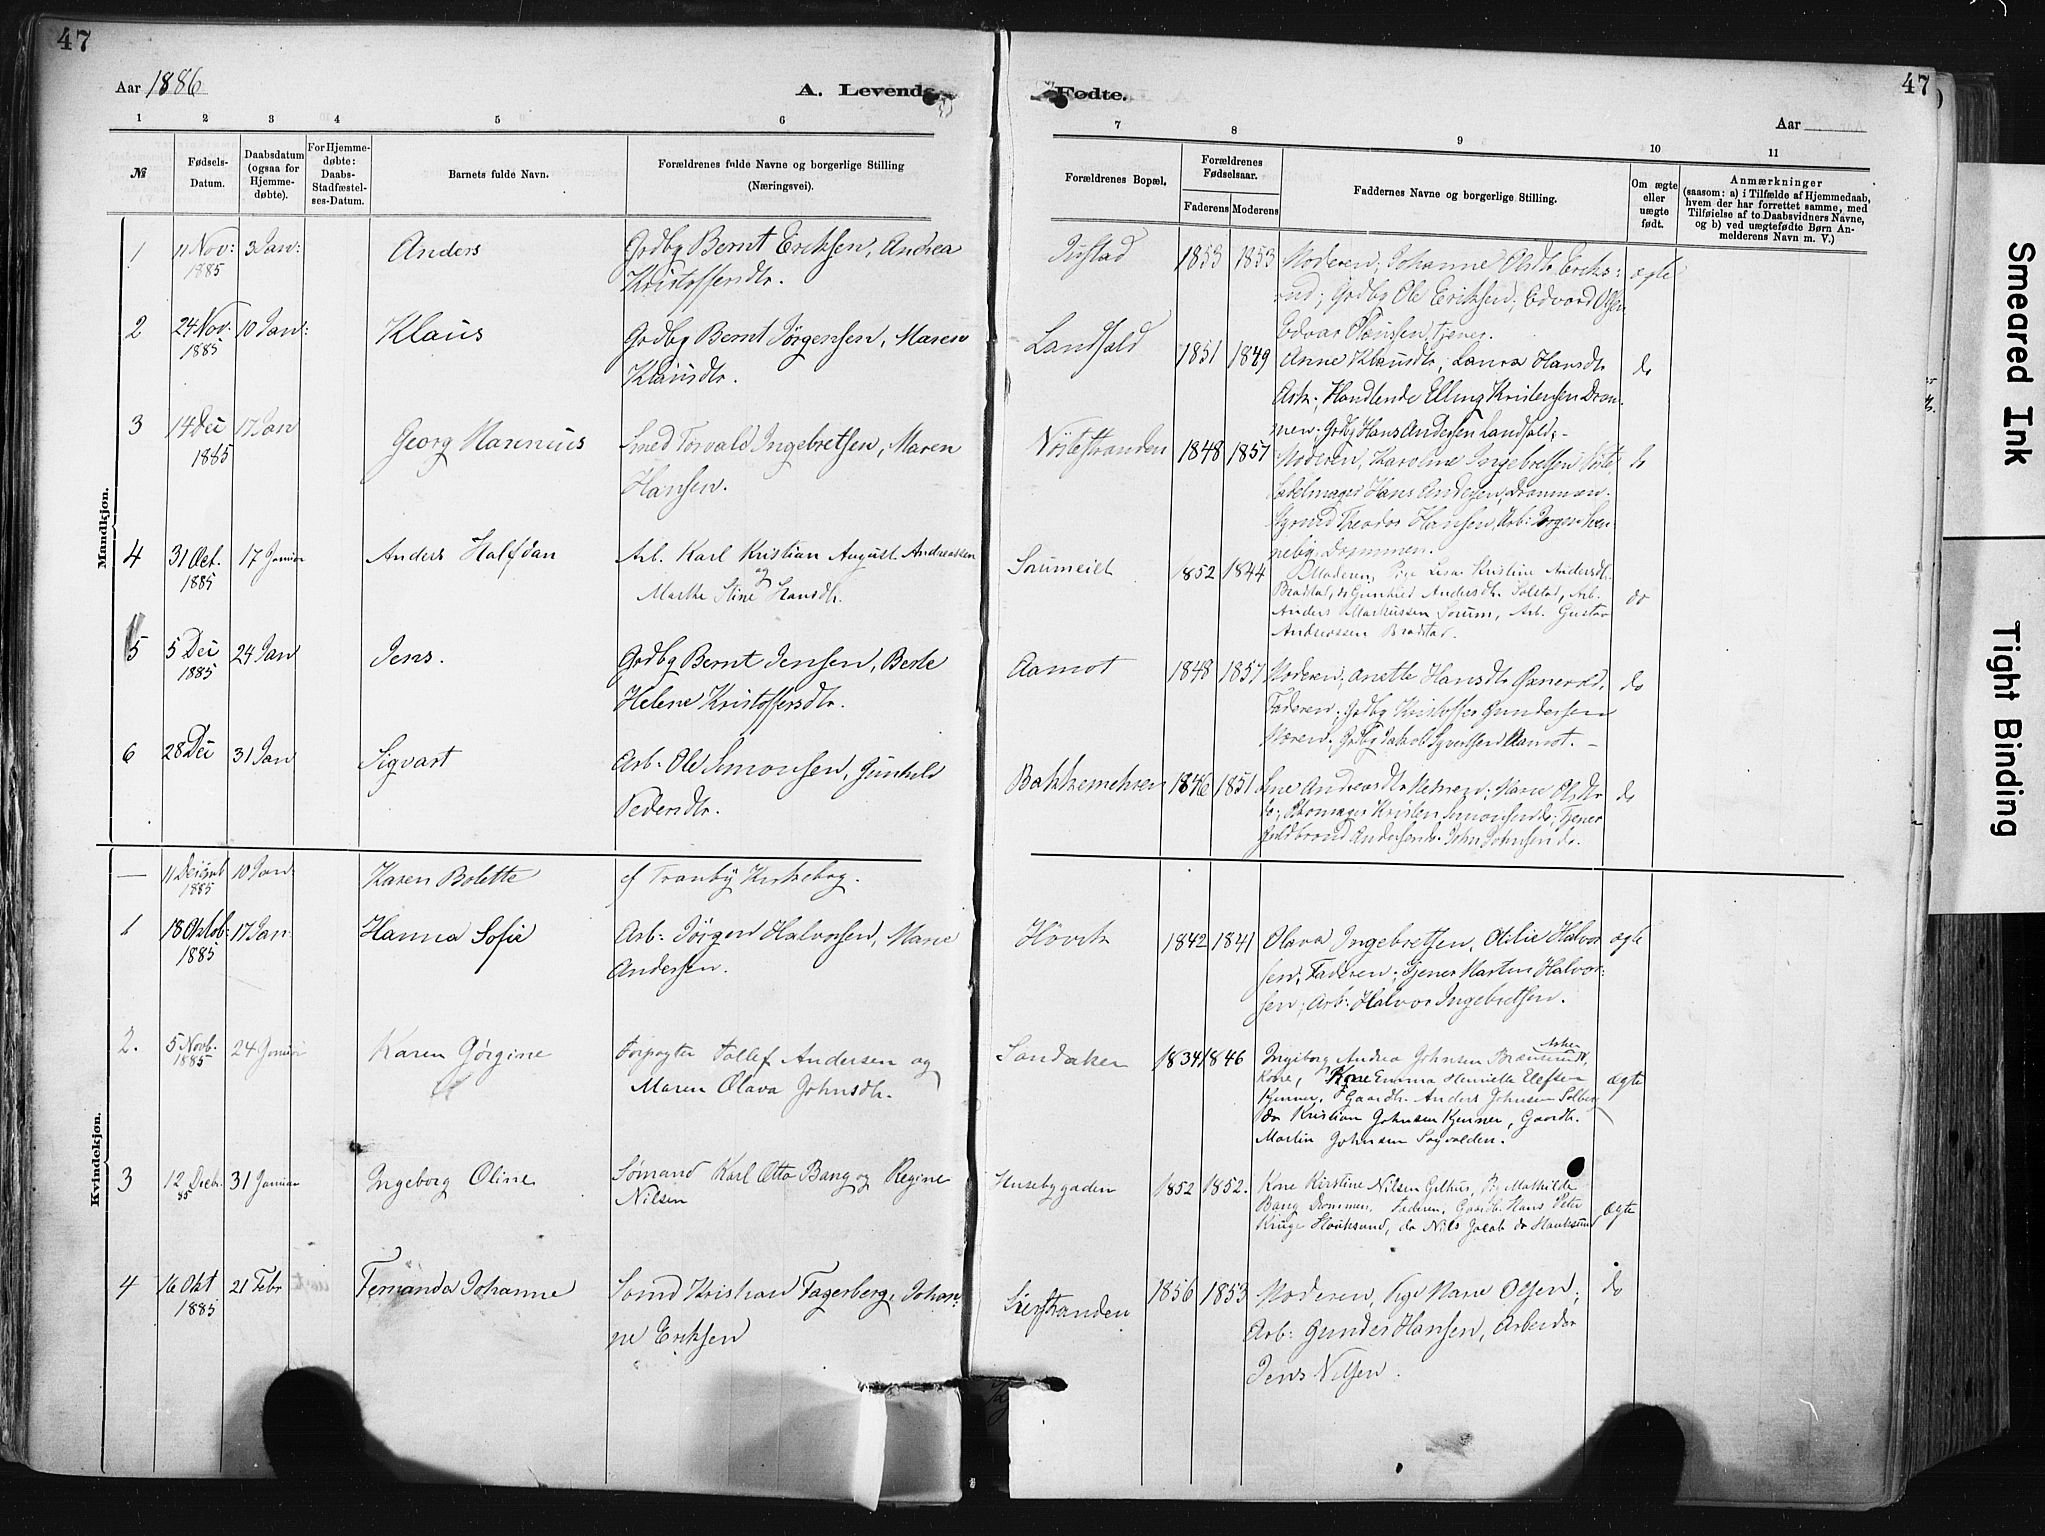 47
Aar 1886
A. Levende
1 2 3 4 5 6
№
Fødsels-Datum.
Daabsdatum (ogsaa for Hjemmedøbte).
For Hjemmedøbte: Daabs-Stadfæstelses-Datum.
Barnets fulde Navn.
Forældrenes fulde Navne og borgerlige Stilling
(Næringsvei).
Mandkjøn.
1 11 Nov: 1885 3 Jan: Anders Grdbg Bernt Eriksen, Andrea
Kristoffersdtr.
2 24 Nov: 1885 10 Jan: Klaus Grdbg Bernt Jørgensen, Maren
Klausdtr.
3 14 Dec 1885 17 Jan Georg Marinius Smed Torvald Ingebretsen, Maren
Hansen.
4 31 Oct. 1885 17 Januar Anders Halfdan Arb. Karl Kristian August Andreassen
og
Marthe Stine Hansdtr.
5 5 Dec 1885 24 Jan Jens. Grdbg Bernt Jensen, Berte
Helene Kristoffersdtr.
6 28 Dec 31 Jan Sigvart Arb: Ole Simonsen, Gunhild
Pedersdtr.
Kvindekjøn.
— 11 1885 10 Jan: Karen Bolette cf Tranby Kirkebog.
1 18 Oktob: 1885 17 Jan: Hanna Sofie Arb: Jørgen Halvorsen, Marie
Andersen.
2. 5 Novb. 1885 24 Januar Karen Gørgine Forpagter Tollef Andersen og
Maren Olava Johnsdtr.
3 12 Decbr. 85 31 Januar Ingeborg Oline Sømand Karl Otto Bang og Regine
Nilsen
4 16 Okt 1885 21 Febr Fernanda Johanne Sømd Kristian Fagerberg, Johan:
ne Eriksen
47
Fødte.
Aar
7 8 9 10 11
Forældrenes Bopæl.
Forældrenes Fødselsaar.
Faderens Moderens
Faddernes Navne og borgerlige Stilling.
Om ægte eller uægte født.
Anmærkninger
(saasom: a) i Tilfælde af Hjemmedaab,
hvem der har forrettet samme, med
Tilføielse af to Daabsvidners Navne,
og b) ved uægtefødte Børn Anmelderens Navn m. V.)
1853 1853 Moderen, Johanne Olsdtr Eriks: ægte
rud; Grdbg Ole Eriksen; Edvard Olsen
Edvar Olausen, tjener.
Landfald 1851 1849 Anne Klausdtr; Laura Hansdtr do
Ask; Handlende Elling Kristensen Dram:
men; Grdbg Hans Andersen Landfald; -
Nøstestranden 1848 1857 Moderen, Karoline Ingebretsen do
Sadelmager Hans Andersen Drammen.
Theodor Hansen, Arb: Jørgen
Drammen.
Sørumeiet 1852 1844 Moderen, Pige Lise Kristine Andersdtr.
Bradstad, do Gunhild Andersdtr. Solstad, Arb. do
Anders Markussen Sørum, Arb. Gustav
Andreassen Bradstad.
Aamot 1848 1857 Moderen; Anette Hansdtr do
Faderen; Grdbg Kristoffer Gundersen
Grdbg Jakob Syvertsen Aamot. -
1846 1851 Andreasdtr Marie Olsdtr do
Kristen Simonsen do; Tjener
Guldbrand Andersen do. John Johnsen do.
Høvik 1842 1841 Olava Ingebretsen, Otilie Halvor ægte
sen; Faderen; Tjener Martin Halvor:
sen; Arb: Halvor Ingebretsen.
Sandaker 1834 1846 Ingeborg Andrea Johnsen Asker
Kone, Kone Emma Henriette Elefsen ægte
Kjenner, Gaardbr. Anders Johnsen Solberg
do Kristian Johnsen Kjenner, Gaardbr.
Martin Johnsen
Husebygaden 1852 1852. Kone Kirstine Nilsen Gilhus, Pg Mathilde
Bang Drammen, Faderen, Gaardb. Hans Peter ægte
Kruge Houksund, do Nils Jacob do Houksund
Lierstranden 1856 1853 Moderen, Pige Marie Olsen; do
Arb: Gunder Hansen, Arbeider
Jens Nilsen.
Smeared Ink
Tight Binding